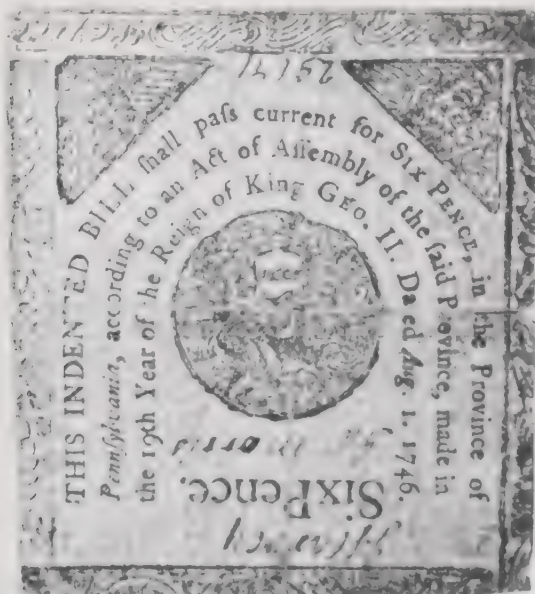 THIS INDENTED BILL ſhall paſs current for SIX PENCE, in the Province of
Pennſylvania, according to an Act of Aſſembly of the ſaid Province, made in
the 19th Year of the Reign of King GEO. II. Dated Aug. 1. 1746.
SixPence.